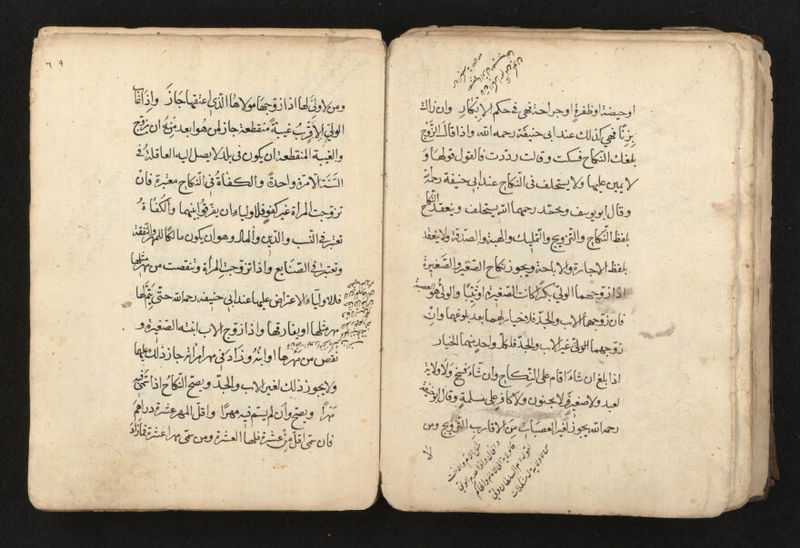 اوحيضة اوظفرة اوجراحة فهي في حكم الابكار وان زالت
بزنا فهي كذلك عند ابي حنيفة رحمه الله واذا قال الزوج
بلغك النكاح فسكت وقالت رددت فالقول قولها و
لا يمين عليها ولا يستحلف في النكاح عند ابي حنيفة رحمه
وقال ابو يوسف ومحمد رحمهما الله يستحلف وينعقد النكاح
بلفظ النكاح والتزويج والتمليك والهبة والصدقة ولا ينعقد
بلفظ الاجارة والاباحة ويجوز نكاح الصغير والصغيرة
اذا زوجهما الولي بكرا كانت الصغيرة او ثيبا والولي هو العصبة
فان زوجهما الاب والجد فلا خيار لهما بعد بلوغهما وان
زوجهما الولي غير الاب والجد فلكل واحد منهما الخيار
اذا بلغ ان شاء اقام على النكاح وان شاء فسخ ولا ولاية
لعبد ولا صغير ولا مجنون ولا كافر على مسلمة وقال ابو حنيفة
رحمه الله يجوز لغير العصبات من الاقارب التزويج ومن
لا
٦٩
ومن لا ولي لها اذا زوجها مولاها الذي اعتقها جاز واذا غاب
الولي الاقرب غيبة منقطعة جاز لمن هو ابعد منه ان يزوج
والغيبة المنقطعة ان يكون في بلد لا يصل اليه القافلة في
السنة الا مرة واحدة والكفاة في النكاح معتبرة فان
تزوجت المراة غير كفو فللاولياء ان يفرقوا بينهما والكفاة
تعتبر في النسب والدين والمال وهو ان يكون مالكا للمهر والنفقة
وتعتبر في الصنايع واذا تزوجت المراة ونقصت من مهر مثلها
فللاولياء الاعتراض عليها عند ابي حنيفة رحمه الله حتى يتم لها
مهر مثلها او يفارقها واذا زوج الاب ابنته الصغيرة و
نقص من مهرها او ابنه وزاد في مهر امراته جاز ذلك عليهما
ولا يجوز ذلك لغير الاب والجد ويصح النكاح اذا سمى فيه
مهرا ويصح وان لم يسم فيه مهرا واقل المهر عشرة دراهم
فان سمى اقل من عشرة فلها العشرة ومن سمى مهرا عشرة فما زاد